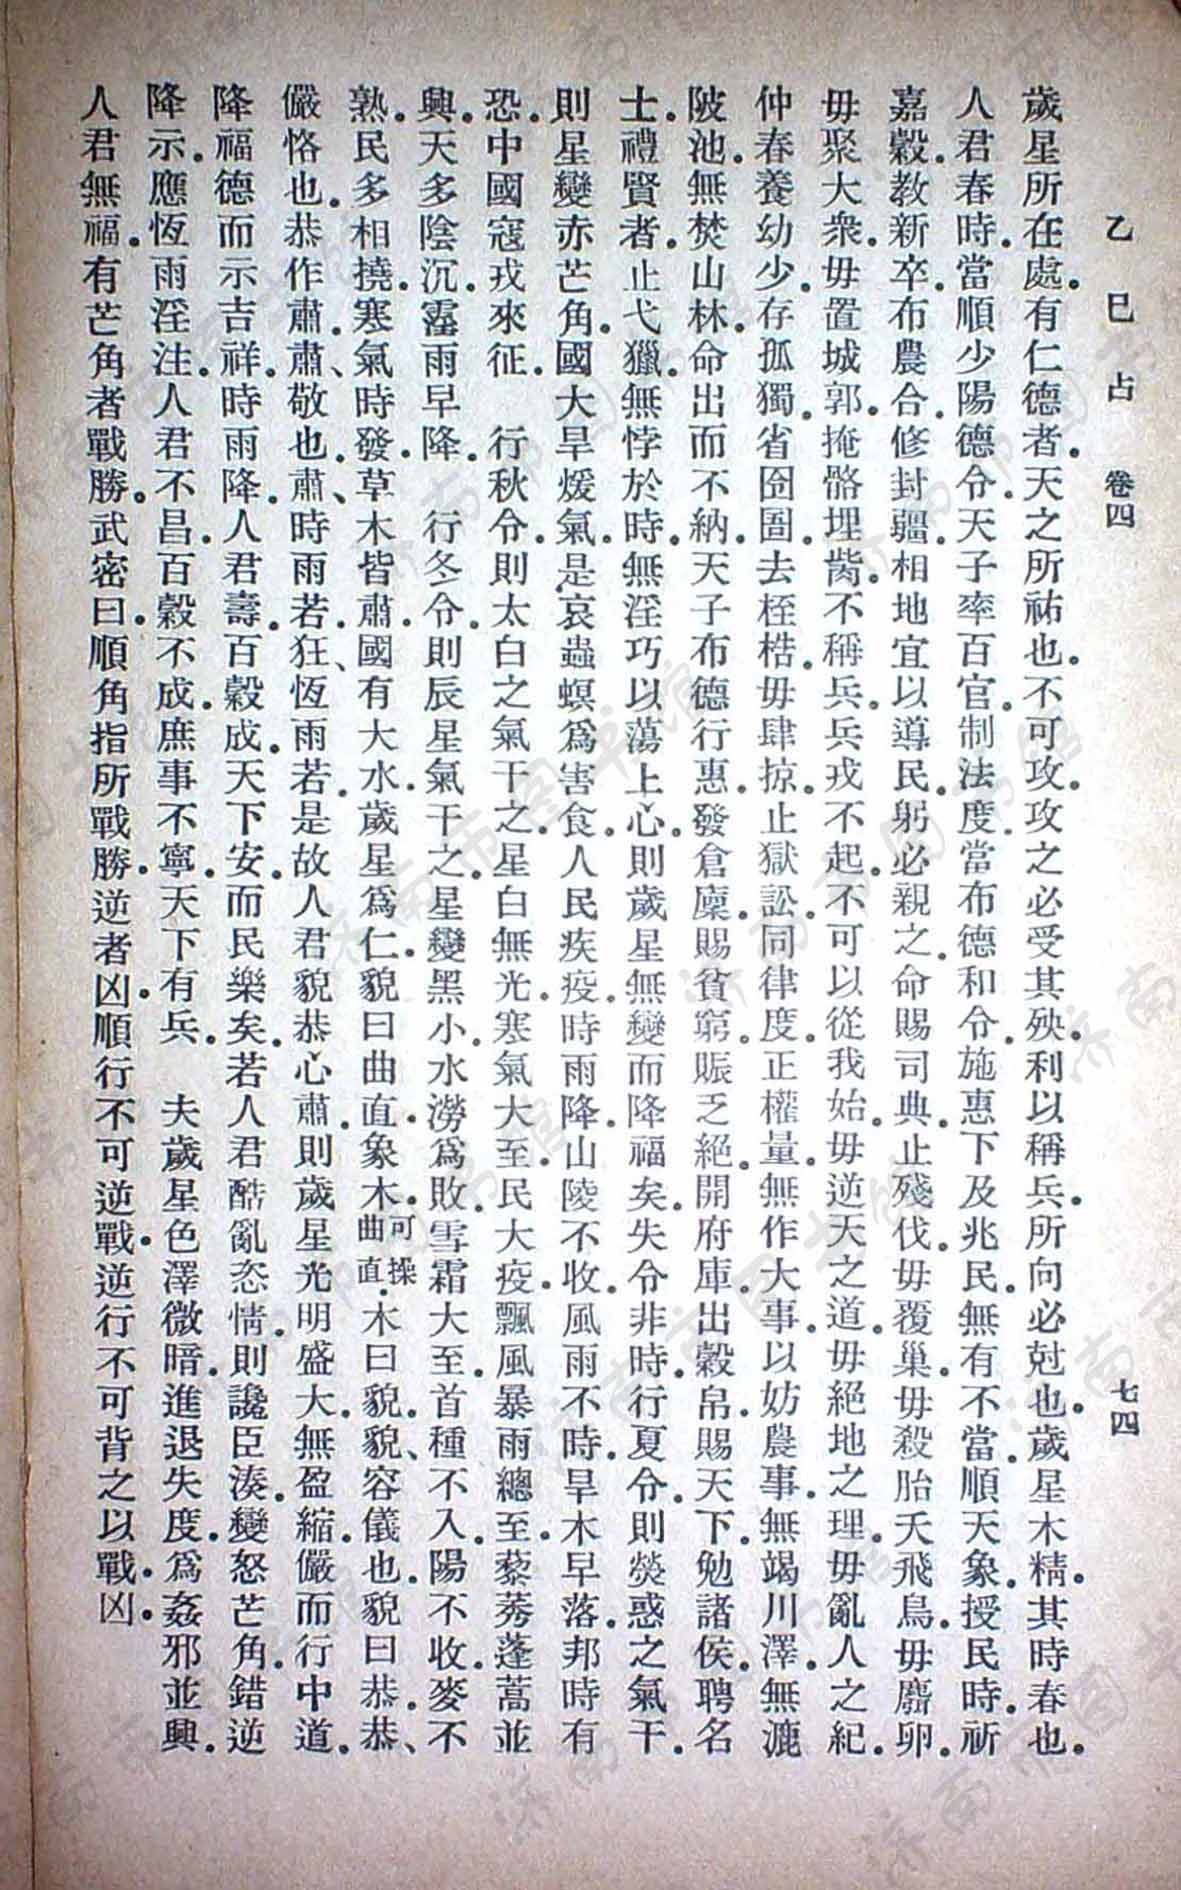 乙巳占　卷四　七四
歲星所在處。有仁德者。天之所祐也。不可攻。攻之必受其殃。利以稱兵。所向必尅也。歲星木精。其時春也。
人君春時。當順少陽德令。天子率百官。制法度。當布德和令。施惠下及兆民。無有不當。順天象。授民時。祈
嘉穀。教新卒。布農合。修封疆。相地宜以導民。躬必親之。命賜司典。止殘伐。毋覆巢。毋殺胎夭飛鳥。毋麛卵。
毋聚大衆。毋置城郭。掩骼埋胔。不稱兵。兵戎不起。不可以從我始。毋逆天之道。毋絕地之理。毋亂人之紀。
仲春養幼少。存孤獨。省囹圄。去桎梏。毋肆掠。止獄訟。同律度。正權量。無作大事。以妨農事。無竭川澤。無漉
陂池。無焚山林。命出而不納。天子布德行惠。發倉廩。賜貧窮。賑乏絕。開府庫。出穀帛。賜天下。勉諸侯。聘名
士。禮賢者。止弋獵。無悖於時。無淫巧以蕩上心。則歲星無變而降福矣。失令非時。行夏令。則熒惑之氣干。
則星變赤芒角。國大旱煖氣。是哀蟲螟爲害食。人民疾疫。時雨降。山陵不收。風雨不時。旱木早落。邦時有
恐。中國寇戎來征。　行秋令。則太白之氣干之。星白無光。寒氣大至。民大疫。飄風暴雨總至。藜莠蓬蒿並
興。天多陰沉。霪雨早降。　行冬令。則辰星氣干之。星變黑小。水澇爲敗。雪霜大至。首種不入。陽不收。麥不
熟。民多相撓。寒氣時發。草木皆肅。國有大水。歲星爲仁。貌曰曲直。象木。可操曲直。木曰貌。貌、容儀也。貌曰恭。恭、
儼恪也。恭作肅。肅、敬也。肅、時雨若。狂、恆雨若。是故人君貌恭心肅。則歲星光明盛大。無盈縮。儼而行中道。
降福德而示吉祥。時雨降。人君壽。百穀成。天下安。而民樂矣。若人君酷亂恣情。則讒臣湊。變怒芒角。錯逆
降示。應恆雨淫注。人君不昌。百穀不成。庶事不寧。天下有兵。　夫歲星色澤微暗。進退失度。爲姦邪並興。
人君無福。有芒角者戰勝。武密曰。順角指所戰勝。逆者凶。順行不可逆戰。逆行不可背之以戰。凶。